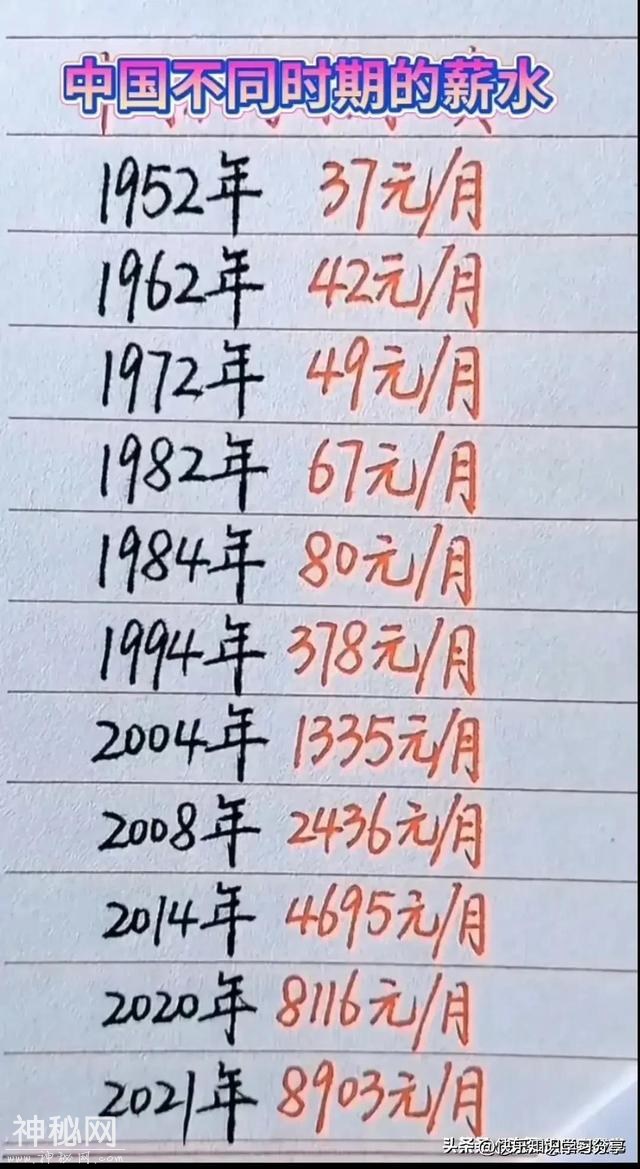 中国不同时期的薪水
1952年 37元/月
1962年 42元/月
1972年 49元/月
1982年 67元/月
1984年 80元/月
1994年 378元/月
2004年 1335元/月
2008年 2436元/月
2014年 4695元/月
2020年 8116元/月
2021年 8903元/月
神秘网
头条 @快乐知识学习分享